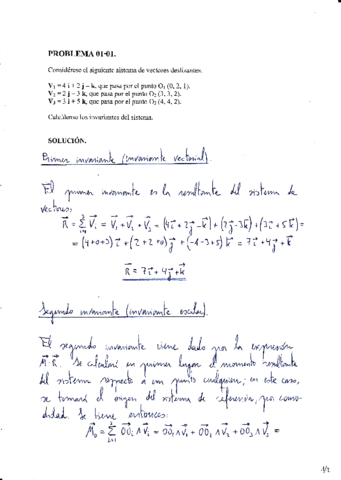 PROBLEMA 01-01.
Considérese el siguiente sistema de vectores deslizantes.
V₁ = 4 i + 2 j – k, que pasa por el punto O₁ (0, 2, 1).
V₂ = 2 j – 3 k, que pasa por el punto O₂ (3, 3, 2).
V₃ = 3 i + 5 k, que pasa por el punto O₃ (4, 4, 2).
Calcúlense los invariantes del sistema.
SOLUCIÓN.
Primer invariante (invariante vectorial).
El primer invariante es la resultante del sistema de
vectores:
R⃗ = Σ V⃗ᵢ = V⃗₁ + V⃗₂ + V⃗₃ = (4i⃗ + 2j⃗ – k⃗) + (2j⃗ – 3k⃗) + (3i⃗ + 5k⃗) =
= (4+0+3) i⃗ + (2+2+0) j⃗ + (-1-3+5) k⃗ = 7i⃗ + 4j⃗ + k⃗
R⃗ = 7i⃗ + 4j⃗ + k⃗
Segundo invariante (invariante escalar).
El segundo invariante viene dado por la expresión
M⃗·R⃗. Se calculará en primer lugar el momento resultante
del sistema respecto a un punto cualquiera; en este caso,
se tomará el origen del sistema de referencia, por como-
didad. Se tiene entonces:
M⃗₀ = Σ OO⃗ᵢ ∧ V⃗ᵢ = OO⃗₁ ∧ V⃗₁ + OO⃗₂ ∧ V⃗₂ + OO⃗₃ ∧ V⃗₃ =